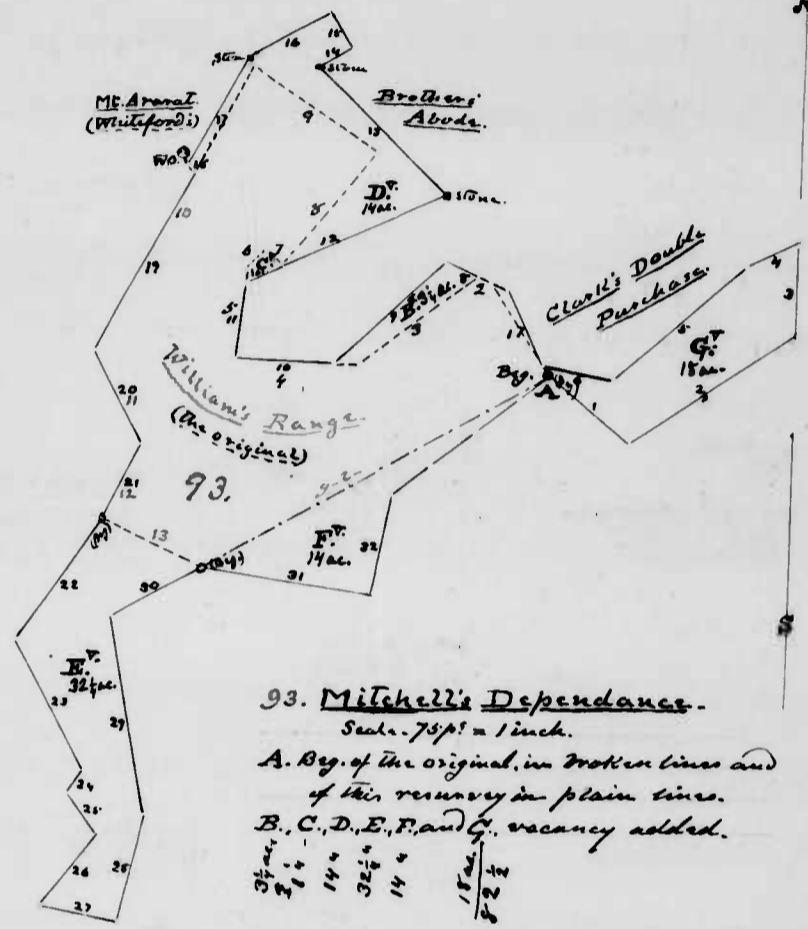 N
16
15
14
Stone
Stone
Mt. Ararat.
(Whiteford's)
Brothers
Abode.
17
9
13
W.O.
18
D. v.
14 ac.
Stone.
10
8
12
6
C.
19
5
11
B. 3¼ ac.
2
3
17
10
4
Clark's Double
Purchase.
4
3
5
G. v.
18 ac.
2
1
Beg.
A
William's Range.
(the original)
93.
20
11
21
12
(Beg)
13
(Beg)
F. v.
14 ac.
32
31
30
22
E. v.
32¼ ac.
23
29
24
25
26
28
27
S
93. Mitchell's Dependance.
Scale. 75 ps = 1 inch.
A. Beg. of the original, in broken lines and
of this resurvey in plain lines.
B., C., D., E., F., and G., vacancy added.
3¼ ac.
14 "
32¼ "
14 "
18 ac.
82½